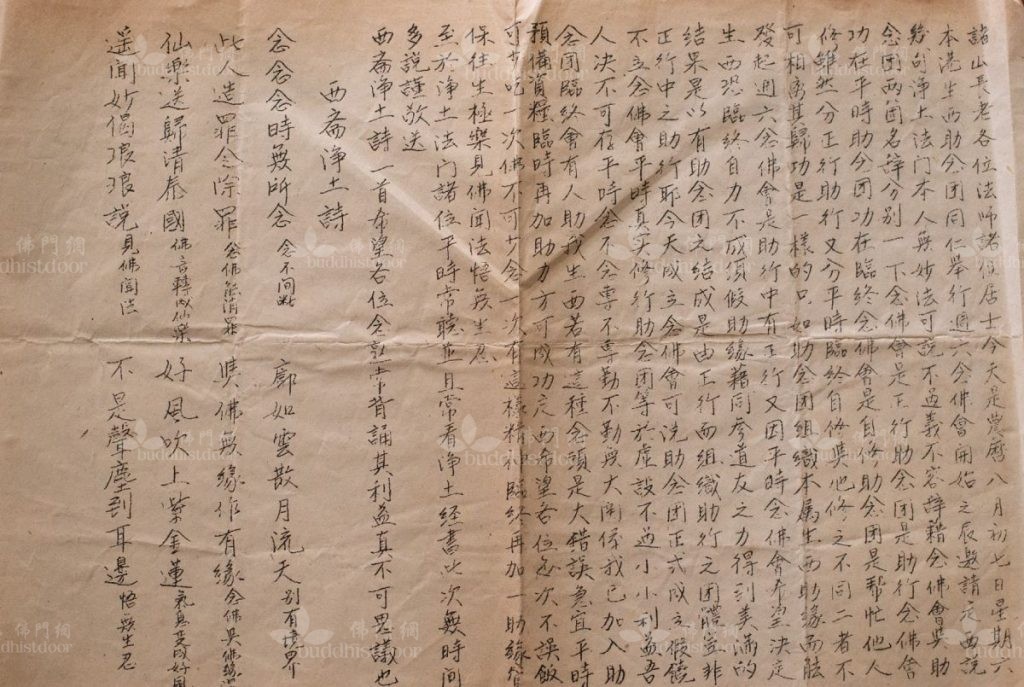 諸山長老各位法師諸位居士今天是農曆八月初七日星期六
本港生西助念团同仁舉行週六念佛會開始之辰邀請定西説
幾句淨土法門本人無妙法可説不過義不容辞藉念佛會與助
念团两個名辞分别一下念佛會是正行助念团是助行念佛會
功在平時助念团功在臨終念佛會是自修助念团是帮忙他人
修雖然分正行助行又分平時臨終自修與他修之不同二者不
可相离其歸功是一樣的只如助念团組織本属生西助缘而能
發起週六念佛會是助行中有正行又因平時念佛會希望决定
生西恐臨終自力不成须假助缘藉同參道友之力得到美滿的
结果是以有助念团之结成是由正行而組織助行之团體豈非
正行中之助行耶今天成立念佛會可说助念团正式成立假饒
不立念佛會平時真实修行助念团等於虚設不過小小利益吾
人决不可存平時念不念專不專勤不勤無大関係我已加入助
念团臨終會有人助我生西若有這種念頭是大錯誤急宜平時
預備資糧臨時再加助力方可成功定西希望各位次不誤飯
可少吃一次佛不可少念一次有這樣精神臨終再加一助缘管
保往生極樂見佛闻法悟無生忍
至於淨土法門諸位平時常聽並且常看淨土经書此次無時间
多説謹敬送
西斋淨土詩一首希望各位念就常背誦其利益真不可思議也
西斋淨土詩
念念念時無所念 念不间断 廓如雲散月流天 别有境界
此人造罪令除罪 念佛能消罪 與佛無缘作有缘 念佛與佛缘
仙樂送歸清泰國 佛言轉成仙樂 好風吹上紫金蓮 氣息变成好風
遥闻妙偈琅琅説 見佛闻法 不是聲塵到耳邊 悟無生忍
佛門網
buddhistdoor